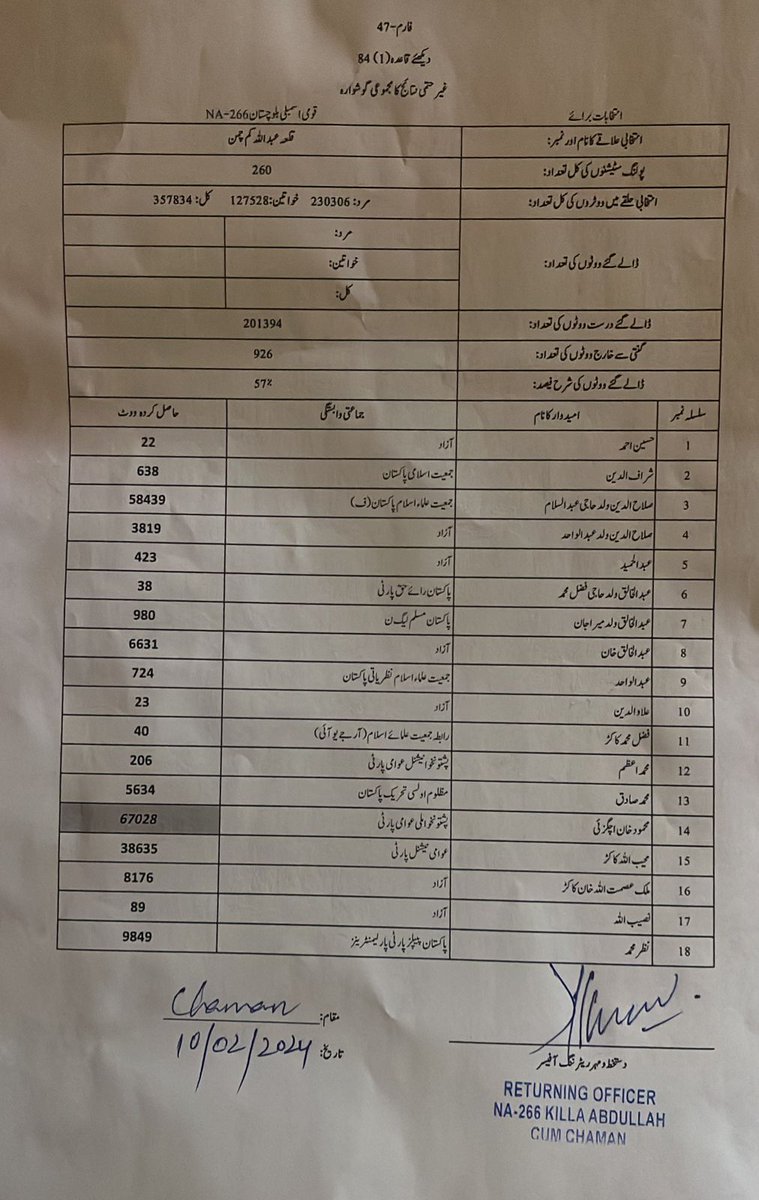 فارم-47
دیکھئے قاعدہ(1) 84
غیر حتمی نتائج کا مجموعی گوشوارہ
انتخابات برائے قومی اسمبلی بلوچستان NA-266
انتخابی علاقے کا نام اور نمبر: قلعہ عبداللہ کم چمن
پولنگ سٹیشنوں کی کل تعداد: 260
انتخابی حلقے میں ووٹروں کی کل تعداد: مرد: 230306 خواتین:127528 کل: 357834
ڈالے گئے ووٹوں کی تعداد: مرد:
خواتین:
کل:
ڈالے گئے درست ووٹوں کی تعداد: 201394
گنتی سے خارج ووٹوں کی تعداد: 926
ڈالے گئے ووٹوں کی شرح فیصد: 57%
سلسلہ نمبر امیدوار کا نام جماعتی وابستگی حاصل کردہ ووٹ
1 حسین احمد آزاد 22
2 شراف الدین جمعیت اسلامی پاکستان 638
3 صلاح الدین ولد حاجی عبدالسلام جمعیت علماء اسلام پاکستان (ف) 58439
4 صلاح الدین ولد عبدالواحد آزاد 3819
5 عبدالحمید آزاد 423
6 عبدالخالق ولد حاجی فضل محمد پاکستان رائے حق پارٹی 38
7 عبدالخالق ولد میراجان پاکستان مسلم لیگ ن 980
8 عبدالخالق خان آزاد 6631
9 عبدالواحد جمعیت علماء اسلام نظریاتی پاکستان 724
10 علاوالدین آزاد 23
11 فضل محمد کاکڑ رابطہ جمعیت علمائے اسلام (آر جے یو آئی) 40
12 محمد اعظم پشتونخوا نیشنل عوامی پارٹی 206
13 محمد صادق مظلوم اولسی تحریک پاکستان 5634
14 محمود خان اچگزئی پشتونخوا ملی عوامی پارٹی 67028
15 محیب اللہ کاکڑ عوامی نیشنل پارٹی 38635
16 ملک عصمت اللہ خان کاکڑ آزاد 8176
17 نصیب اللہ آزاد 89
18 نظر محمد پاکستان پیپلز پارٹی پارلیمنٹرینز 9849
مقام: Chaman
تاریخ: 10/02/2024
دستخط و مہر ریٹرننگ آفیسر
RETURNING OFFICER
NA-266 KILLA ABDULLAH
CUM CHAMAN